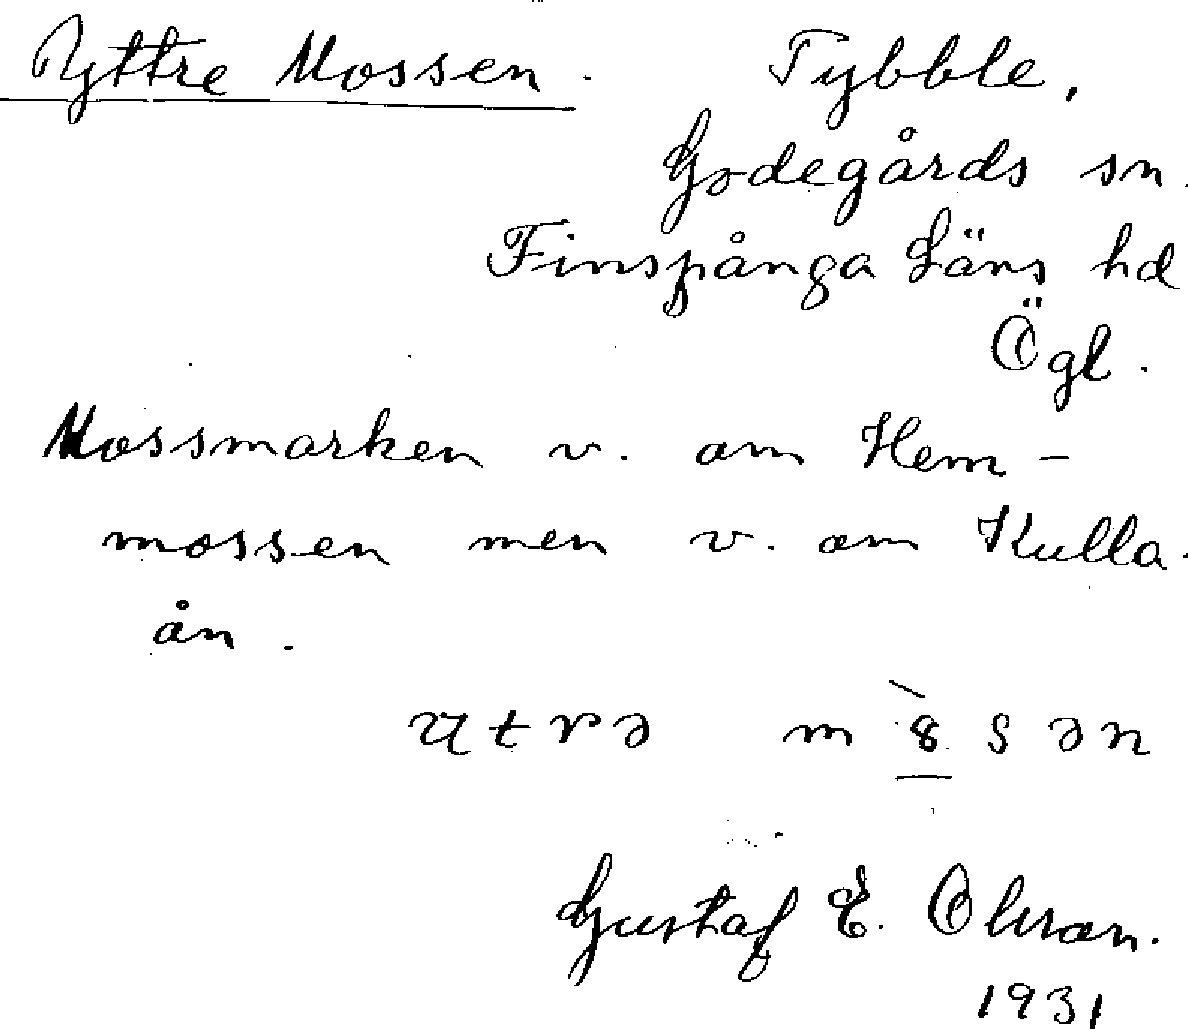 Yttre Mossen. Tybble,
Godegårds sn.
Finspånga Läns hd
Ögl.
Mossmarken v. om Hem-
mossen men v. om Kulla-
ån.
Gustaf E. Olsson.
1931